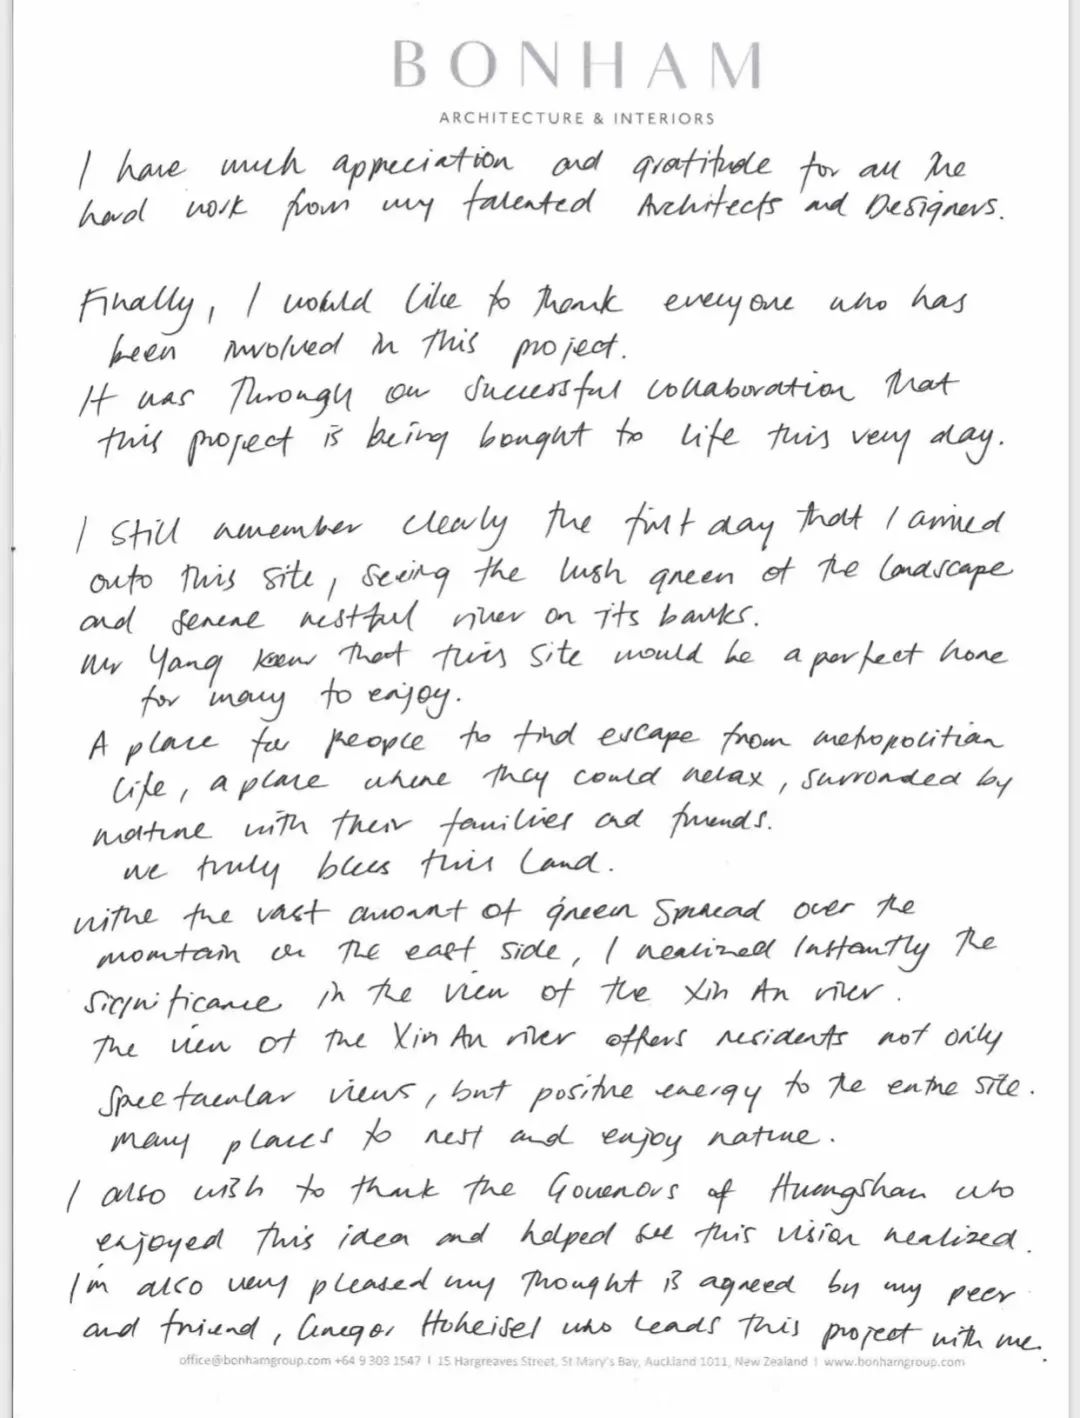 BONHAM
ARCHITECTURE & INTERIORS
I have much appreciation and gratitude for all the
hard work from my talented Architects and Designers.
Finally, I would like to thank everyone who has
been involved in this project.
It was through our successful collaboration that
this project is being bought to life this very day.
I still remember clearly the first day that I arrived
onto this site, seeing the lush green of the landscape
and serene restful river on its banks.
Mr Yang knew that this site would be a perfect home
for many to enjoy.
A place for people to find escape from metropolitian
life, a place where they could relax, surronded by
nature with their families and friends.
We truly bless this land.
withe the vast amount of green spread over the
mountain on the east side, I realized instantly the
significance in the view of the Xin An river.
The view of the Xin An river offers residents not only
spectacular views, but positive energy to the entire site.
Many places to rest and enjoy nature.
I also wish to thank the Govenors of Huangshan who
enjoyed this idea and helped see this vision realized.
I'm also very pleased my thought is agreed by my peer
and friend, Gregor Hoheisel who leads this project with me.
office@bonhamgroup.com +64 9 303 1547 | 15 Hargreaves Street, St Mary's Bay, Auckland 1011, New Zealand | www.bonhamgroup.com